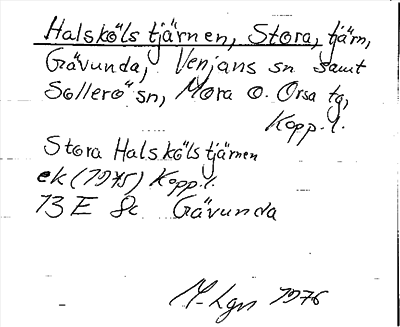 Halsköls tjärnen, Stora, tjärn,
Gävunda, Venjans sn samt
Sollerö sn, Mora o. Orsa tg,
Kopp. l.
Stora Halsköls tjärnen
ek (1975) Kopp. l.
13 E 8c Gävunda
M-Lgn 1976